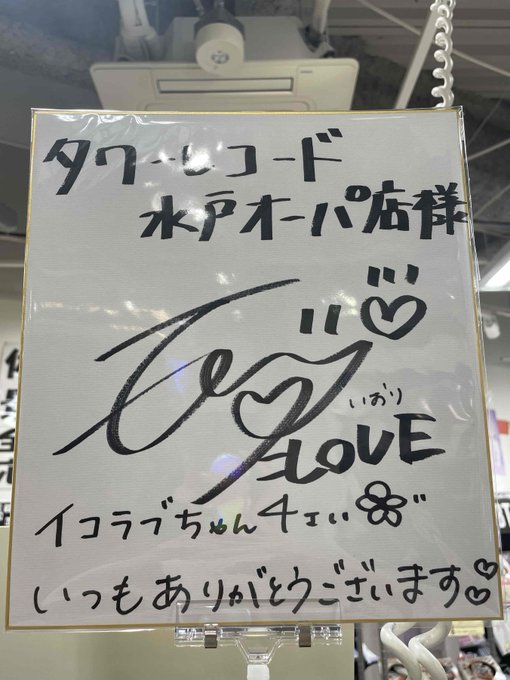 タワーレコード
水戸オーパ店様
いおり
=LOVE
イコラブちゃん4ェい
いつもありがとうございます